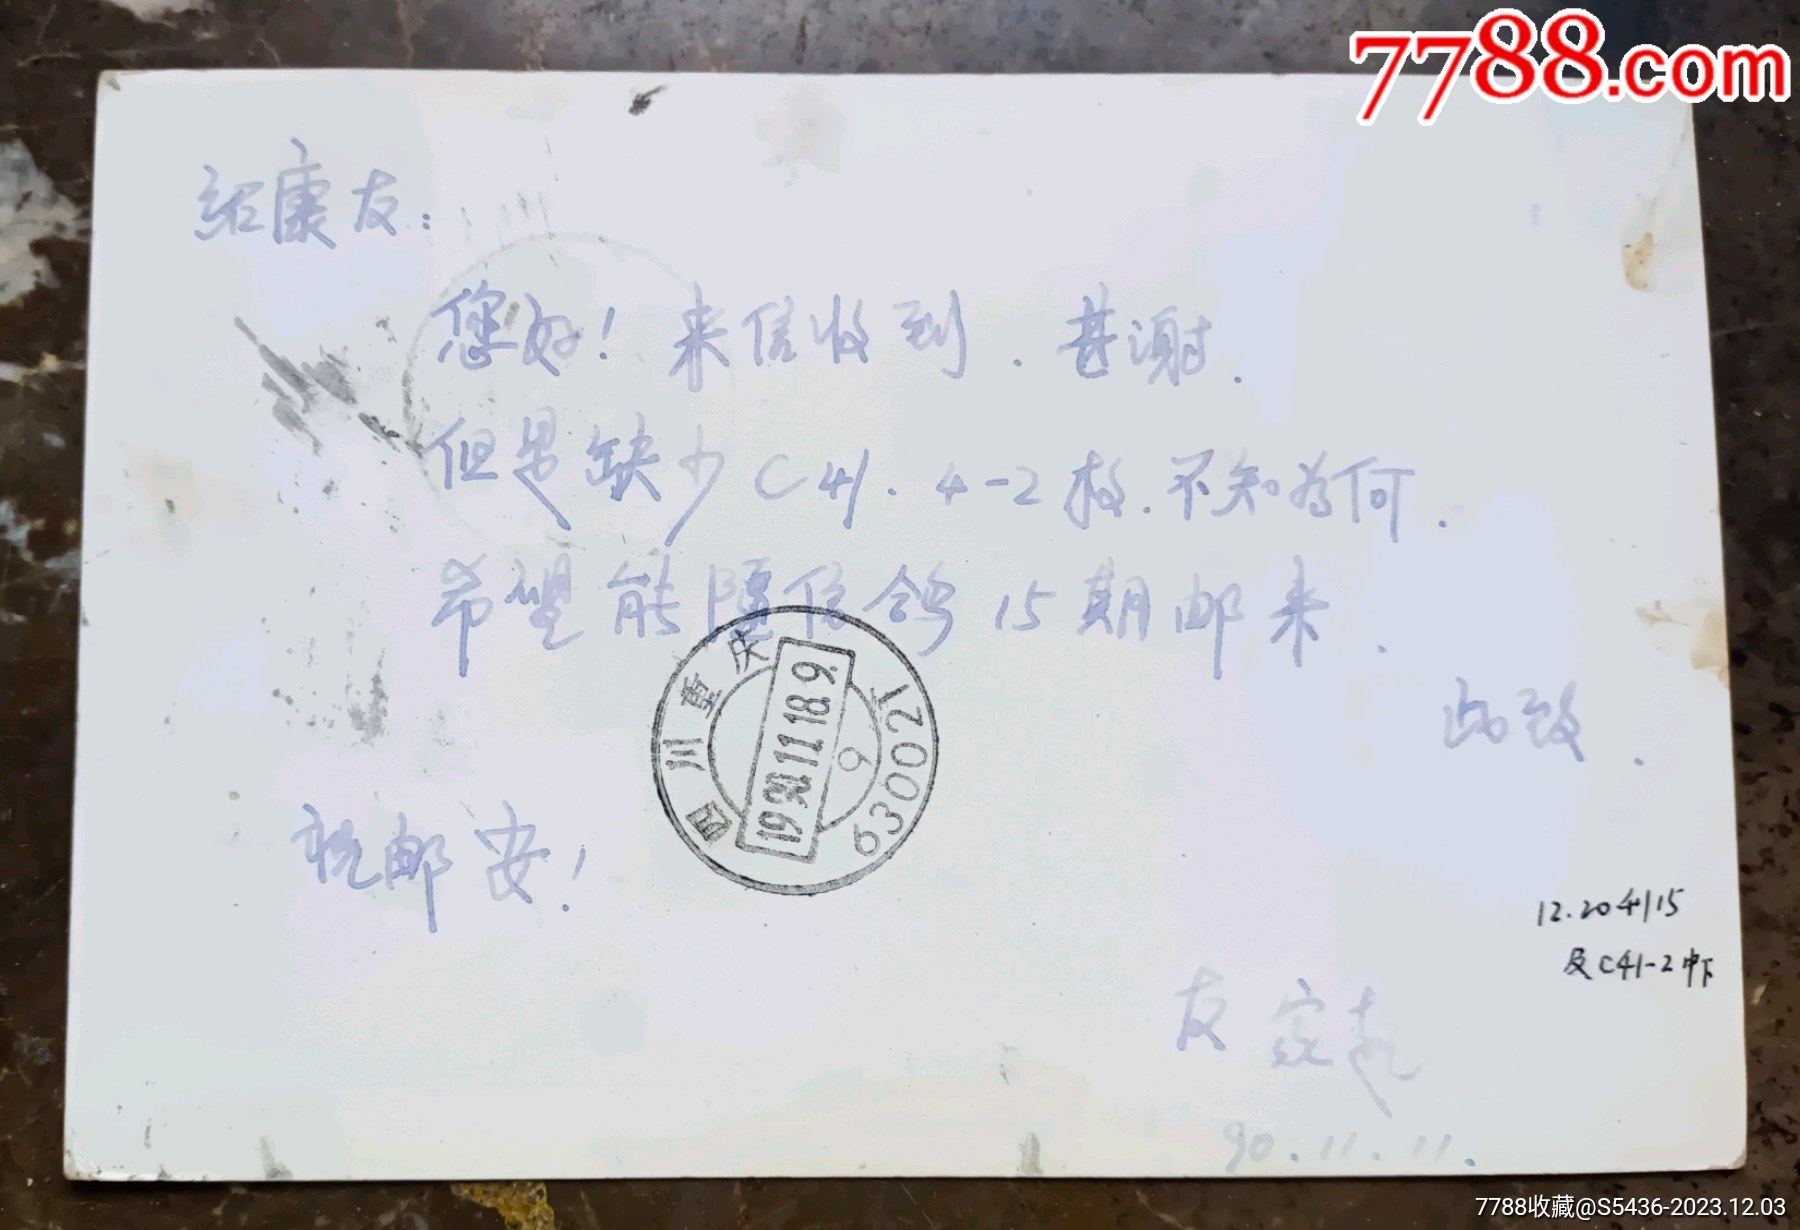 7788.com
绍康友:
您好!来信收到.甚谢.
但是缺少C41.4-2枚.不知为何.
希望能随信鸽15期邮来.
此致.
祝邮安!
四川重庆
1990.11.18.9.
9
630021
12.20 4/15
及C41-2
友 家
90.11.11.
7788收藏@S5436-2023.12.03